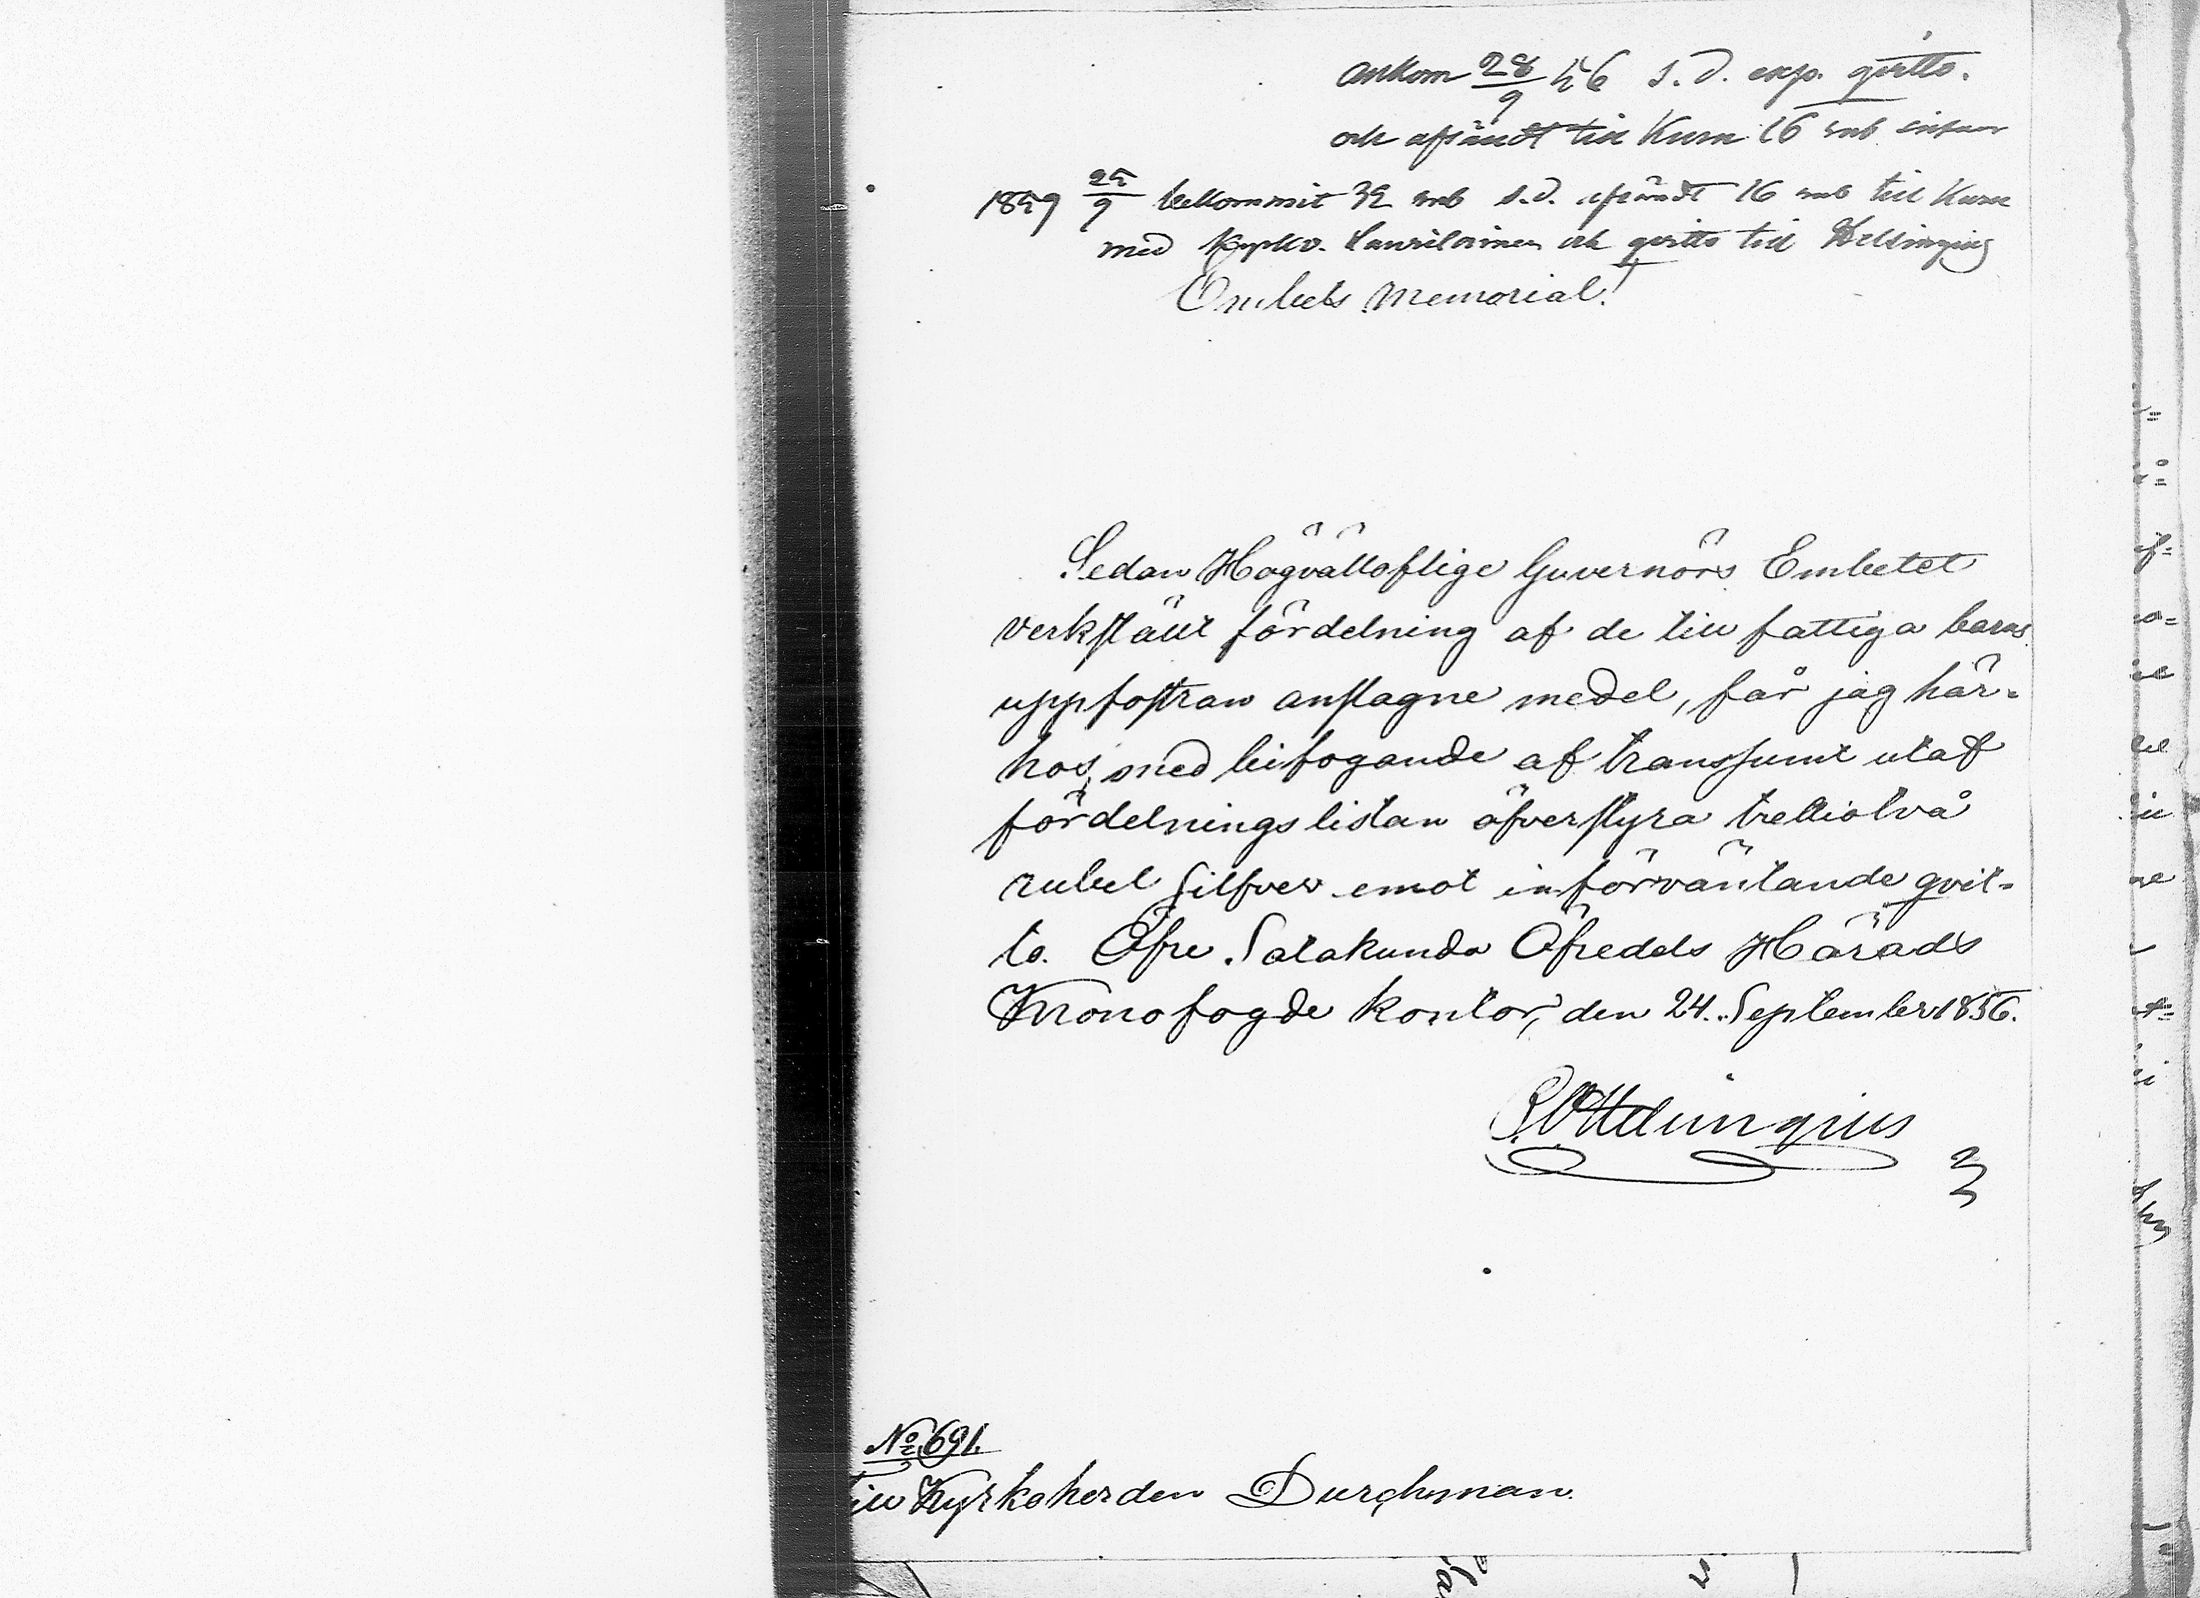 ankom 28/9 56 s. d. exp. qvitto.
och afsändt till Kuru 16 rub
1859 25/9 bekommit 32 rub s. d. afsändt 16 rub till Kuru
med och qvitto till Hellsingius
Embets Memorial!
Sedan Högvälloflige Guvernörs Embetet
verkstält fördelning af de till fattiga barns
uppfostran anslagne medel, får jag här-
hos, med bifogande af transsumt utaf
fördelnings listan öfverstyra trettiotvå
rubel silfver emot införväntande qvit-
to. Öfre Satakunda Öfredels Härads
Kronofogde kontor, den 24. September 1856.
Hellsingius
No 691.
Till Kyrkoherden Durchman.